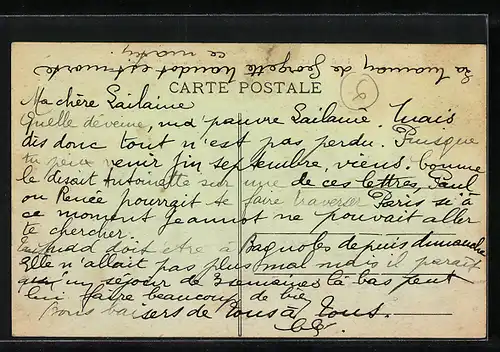 La maman de Georgette Naudot est morte
ce matin.
CARTE POSTALE
9
Ma chère Lailaine
Quelle déveine, ma pauvre Lailaine Mais
dis donc tout n'est pas perdu. Puisque
tu peux venir fin septembre, viens, comme
le disait Antoinette sur une de ces lettres, Paul
ou Renée pourrait te faire traverser Paris si à
ce moment Jeannot ne pouvait aller
te chercher.
doit être à Bagnoles depuis dimanche
Elle n'allait pas plus mal mais il paraît
qu'un séjour de 3 semaines là bas peut
lui faire beaucoup de bien
Bons baisers de tous à tous.